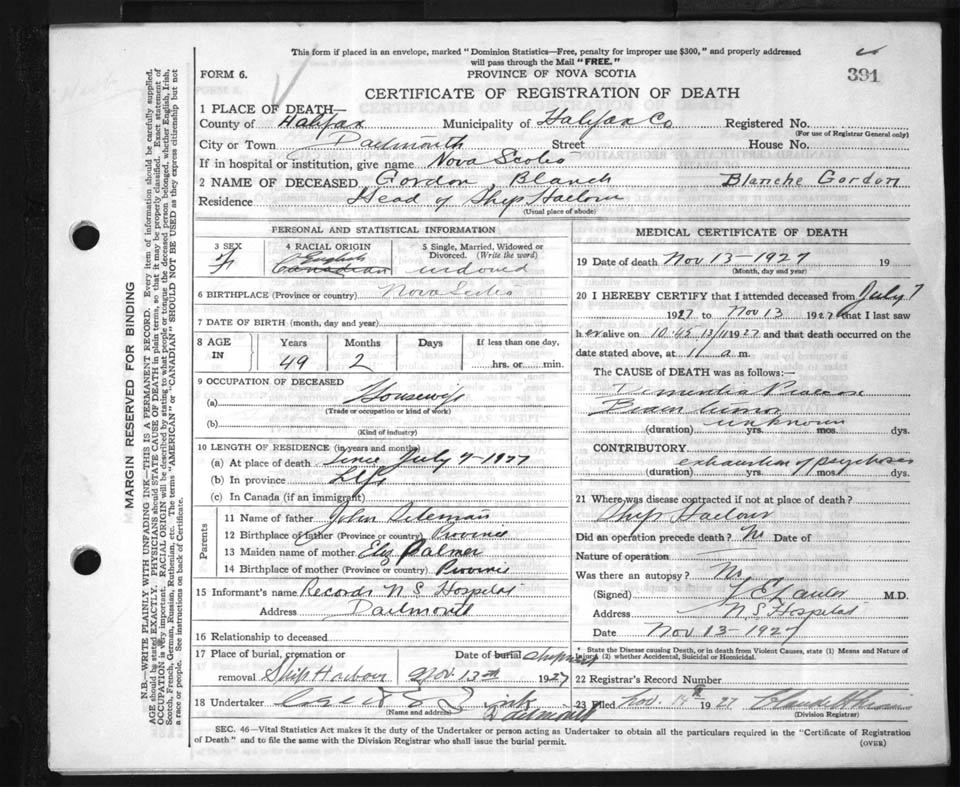 This form if placed in an envelope, marked "Dominion Statistics—Free, penalty for improper use $300," and properly addressed
will pass through the Mail "FREE."
391
FORM 6.
PROVINCE OF NOVA SCOTIA
CERTIFICATE OF REGISTRATION OF DEATH
1 PLACE OF DEATH—
County of Halifax Municipality of Halifax Co Registered No.
(For use of Registrar General only)
City or Town Dartmouth Street House No.
If in hospital or institution, give name Nova Scotia
2 NAME OF DECEASED Gordon Blanch Blanche Gordon
Residence Head of Ship Harbour
(Usual place of abode)
PERSONAL AND STATISTICAL INFORMATION
3 SEX 4 RACIAL ORIGIN 5 Single, Married, Widowed or
Divorced. (Write the word)
F English Canadian widowed
6 BIRTHPLACE (Province or country) Nova Scotia
7 DATE OF BIRTH (month, day and year)
8 AGE IN Years Months Days If less than one day,
49 2 hrs. or min.
9 OCCUPATION OF DECEASED
(a) Housewife
(Trade or occupation or kind of work)
(b)
(Kind of industry)
10 LENGTH OF RESIDENCE (in years and months)
(a) At place of death Since July 7-1927
(b) In province Life
(c) In Canada (if an immigrant)
Parents
11 Name of father John
12 Birthplace of father (Province or country) Province
13 Maiden name of mother Eliz Palmer
14 Birthplace of mother (Province or country) Province
15 Informant's name Records N S Hospital
Address Dartmouth
16 Relationship to deceased
17 Place of burial, cremation or Date of burial
removal Ship Harbour Nov. 13th 1927
18 Undertaker
(Name and address) Dartmouth
MEDICAL CERTIFICATE OF DEATH
19 Date of death Nov 13-1927 19
(Month, day and year)
20 I HEREBY CERTIFY that I attended deceased from July 7
1927 to Nov 13 1927 that I last saw
her alive on 10.45 13/11 1927 and that death occurred on the
date stated above, at 11 a.m.
The CAUSE of DEATH was as follows:—
Dementia Praecox
unknown
(duration) yrs. mos. dys.
CONTRIBUTORY exhaustion of psychosis
(duration) yrs. mos. dys.
21 Where was disease contracted if not at place of death?
Ship Harbour
Did an operation precede death? No Date of
Nature of operation
Was there an autopsy? No
(Signed) M.D.
Address N S Hospital
Date Nov 13-1927
* State the Disease causing Death, or in death from Violent Causes, state (1) Means and Nature of
Injury, (2) whether Accidental, Suicidal or Homicidal.
22 Registrar's Record Number
23 Filed Nov. 14th 1927
(Division Registrar)
SEC. 46—Vital Statistics Act makes it the duty of the Undertaker or person acting as Undertaker to obtain all the particulars required in the "Certificate of Registration
of Death" and to file the same with the Division Registrar who shall issue the burial permit.
(OVER)
MARGIN RESERVED FOR BINDING
N.B.—WRITE PLAINLY WITH UNFADING INK—THIS IS A PERMANENT RECORD. Every item of information should be carefully supplied.
AGE should be stated EXACTLY. PHYSICIANS should STATE CAUSE OF DEATH in plain terms, so that it may be properly classified. Exact statement of
OCCUPATION is very important. RACIAL ORIGIN will be described by stating to what people or tongue the deceased person belonged, whether English, Irish,
Scotch, French, German, Russian, Ruthenian, etc. The terms "AMERICAN" or "CANADIAN" SHOULD NOT BE USED as they express citizenship but not
a race or people. See instructions on back of Certificate.